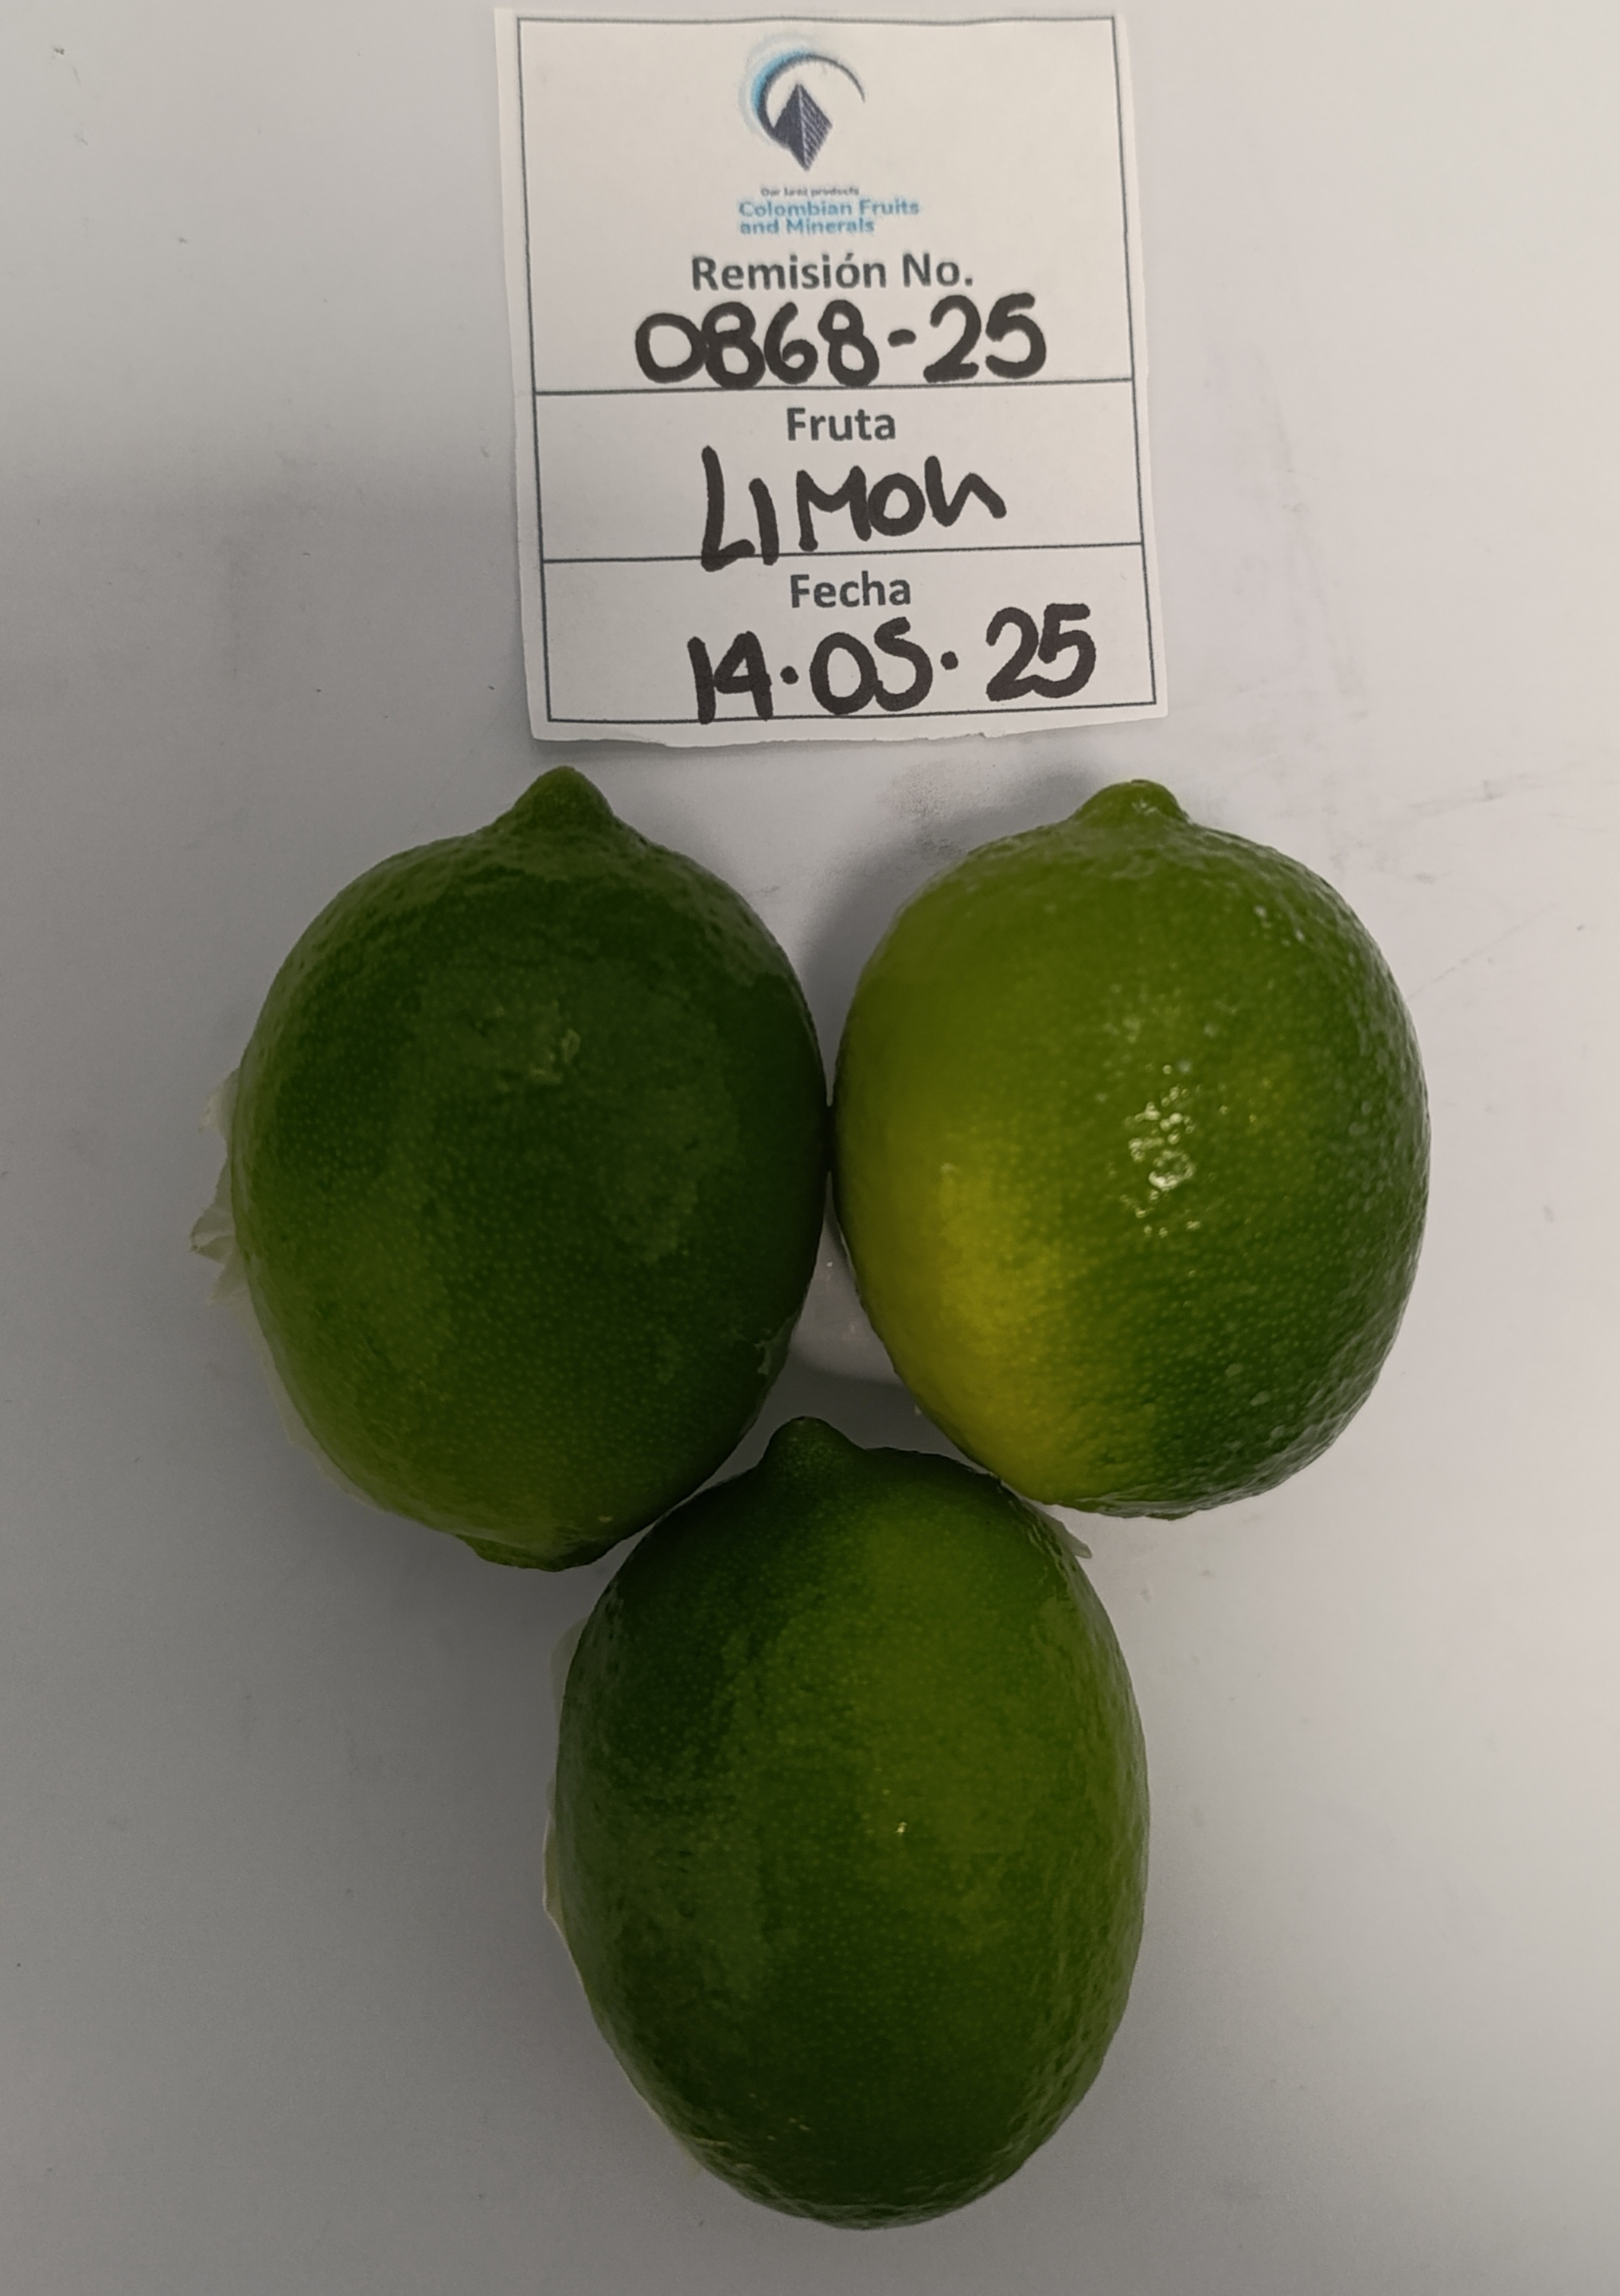 Our best products
Colombian Fruits
and Minerals
Remisión No.
0868-25
Fruta
LIMON
Fecha
14.05.25